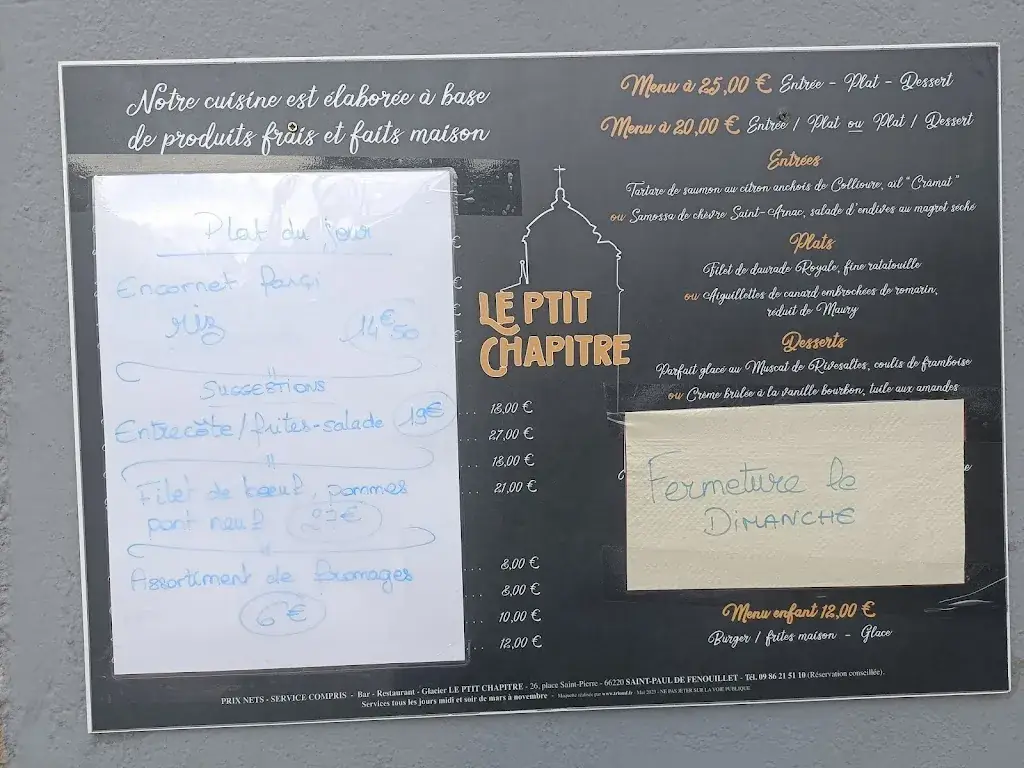 Notre cuisine est élaborée à base
de produits frais et faits maison
Plat du jour
Encornet farçi
riz 14€50
SUGGESTIONS
Entrecôte/frites-salade 19€
Filet de boeuf, pommes
pont neuf
Assortiment de fromages
6€
18,00 €
27,00 €
18,00 €
21,00 €
8,00 €
8,00 €
10,00 €
12,00 €
LE PTIT
CHAPITRE
Menu à 25,00 € Entrée - Plat - Dessert
Menu à 20,00 € Entrée / Plat ou Plat / Dessert
Entrées
Tartare de saumon au citron anchois de Collioure, ail "Cramat"
ou Samossa de chèvre Saint-Arnac, salade d'endives au magret séché
Plats
Filet de daurade Royale, fine ratatouille
ou Aiguillettes de canard embrochées de romarin,
réduit de Maury
Desserts
Parfait glacé au Muscat de Rivesaltes, coulis de framboise
ou Crème brûlée à la vanille bourbon, tuile aux amandes
Fermeture le
DIMANCHE
Menu enfant 12,00 €
Burger / frites maison - Glace
PRIX NETS - SERVICE COMPRIS - Bar - Restaurant - Glacier LE PTIT CHAPITRE - 26, place Saint-Pierre - 66220 SAINT-PAUL DE FENOUILLET - Tél. 09 86 21 51 10 (Réservation conseillée).
Services tous les jours midi et soir de mars à novembre - Maquette réalisée par - Mai 2023 - NE PAS JETER SUR LA VOIE PUBLIQUE